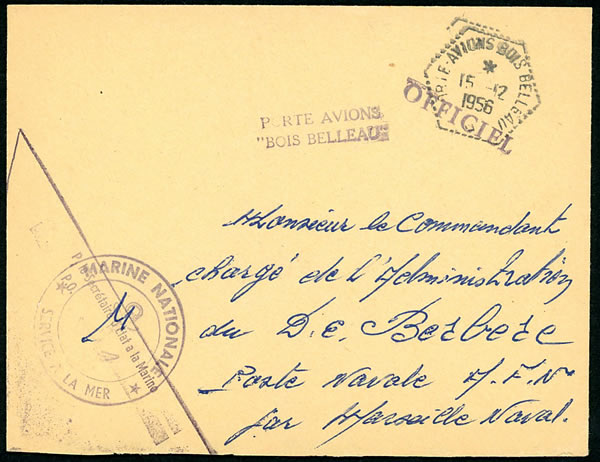 PORTE-AVIONS BOIS BELLEAU
*
15 -12
1956
OFFICIEL
PORTE AVIONS
"BOIS BELLEAU"
Monsieur le Commandant
chargé de l'Administration
du D.E. Berbere
Poste Navale A.F.N
par Marseille Naval.
MARINE NATIONALE
SERVICE LA MER
Secrétaire d'Etat a la Marine
P.O.
M